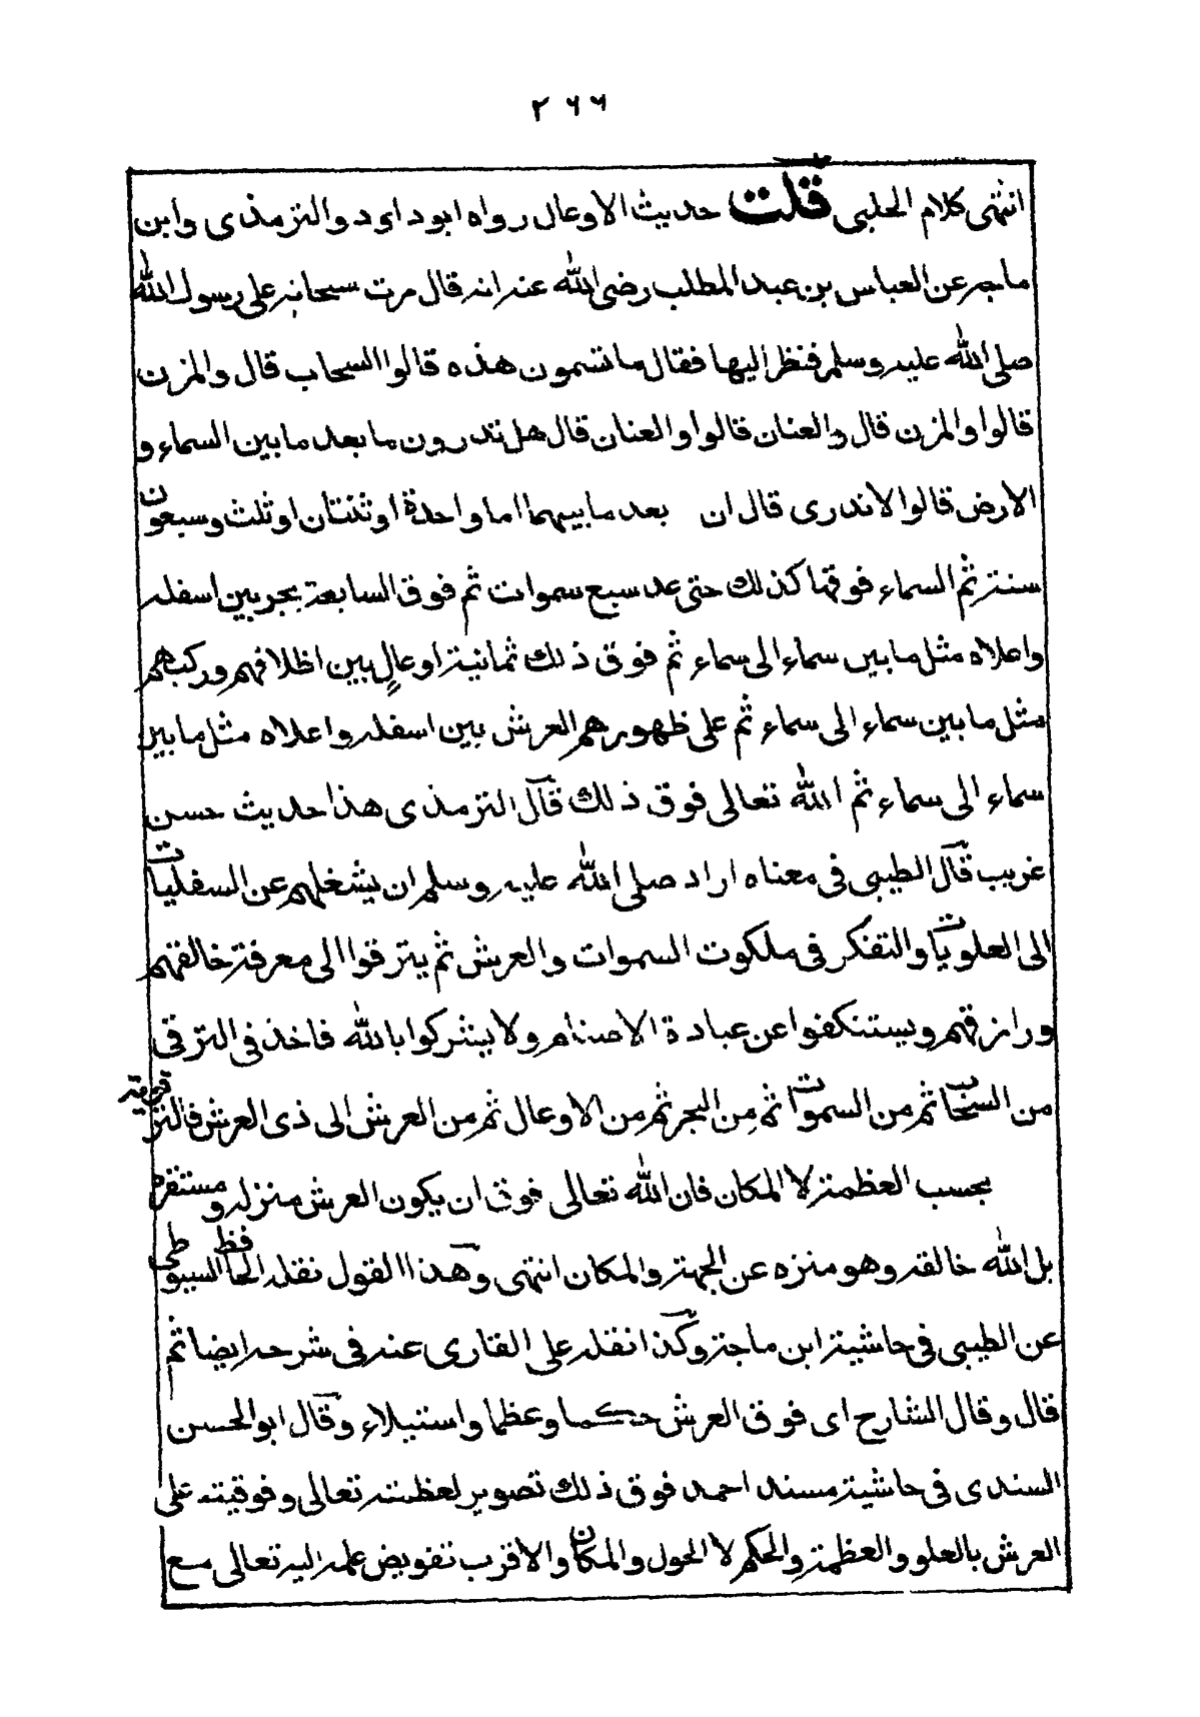 ٢٦٦
انتهى كلام الحلبى قلت حديث الاوعال رواه ابو داود والترمذى وابن
ماجه عن العباس بن عبد المطلب رضى الله عنه انه قال مرت سحابة على رسول الله
صلى الله عليه وسلم فنظر اليها فقال ما تسمون هذه قالوا السحاب قال والمزن
قالوا والمزن قال والعنان قالوا والعنان قال هل تدرون ما بعد ما بين السماء و
الارض قالوا لا ندرى قال ان بعد ما بينهما اما واحدة او ثنتان او ثلث وسبعون
سنة ثم السماء فوقها كذلك حتى عد سبع سموات ثم فوق السابعة بحر بين اسفله
واعلاه مثل ما بين سماء الى سماء ثم فوق ذلك ثمانية اوعالٍ بين اظلافهم وركبهم
مثل ما بين سماء الى سماء ثم على ظهورهم العرش بين اسفله واعلاه مثل ما بين
سماء الى سماء ثم الله تعالى فوق ذلك قال الترمذى هذا حديث حسن
غريب قال الطيبى فى معناه اراد صلى الله عليه وسلم ان يشغلهم عن السفليات
الى العلويات والتفكر فى ملكوت السموات والعرش ثم يترقوا الى معرفة خالقهم
ورازقهم ويستنكفوا عن عبادة الاصنام ولا يشركوا بالله فاخذ فى الترقى
من السحاب ثم من السموات ثم من البحر ثم من الاوعال ثم من العرش الى ذى العرش فالترقى فوقية
بحسب العظمة لا المكان فان الله تعالى فوق ان يكون العرش منزله ومستقره
بل الله خالقه وهو منزه عن الجهة والمكان انتهى وهذا القول نقله الحافظ السيوطى
عن الطيبى فى حاشية ابن ماجة وكذا نقله على القارى عنه فى شرحه ايضا ثم
قال وقال الشارح اى فوق العرش حكما وعظما واستيلاء وقال ابو الحسن
السندى فى حاشية مسند احمد فوق ذلك تصوير لعظمته تعالى وفوقيته على
العرش بالعلو والعظمة والحكم لا الحول والمكان والاقرب تفويض علمه اليه تعالى مع